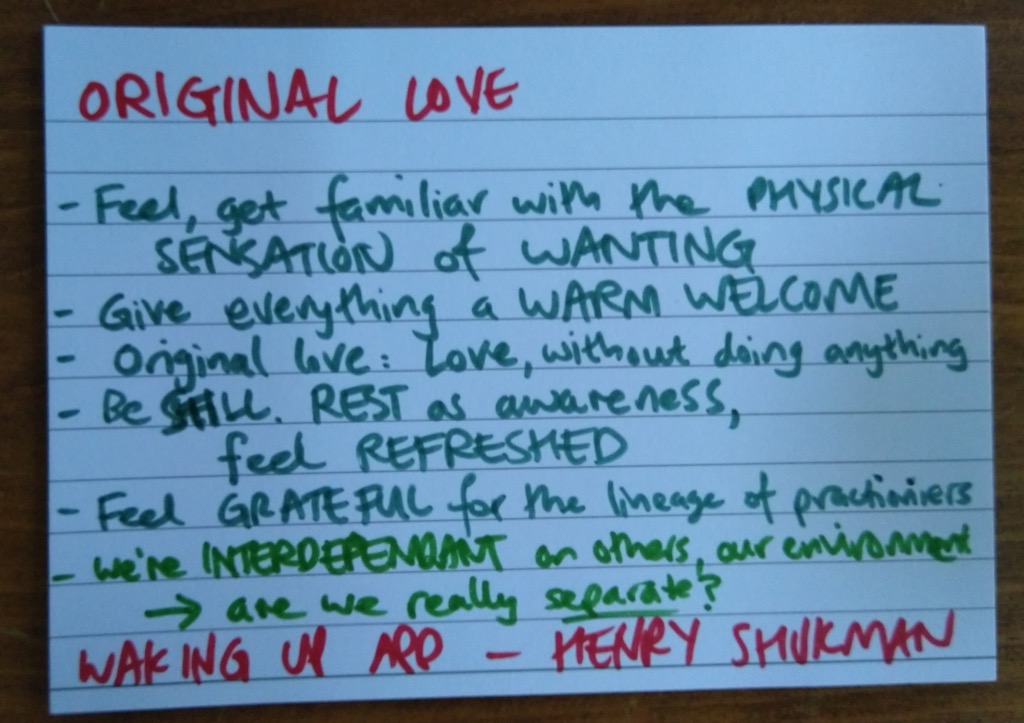 ORIGINAL LOVE
- Feel, get familiar with the PHYSICAL
SENSATION of WANTING
- Give everything a WARM WELCOME
- Original love: Love, without doing anything
- Be STILL. REST as awareness,
feel REFRESHED
- Feel GRATEFUL for the lineage of practioniers
- we're INTERDEPENDANT on others, our environment
→ are we really separate?
WAKING UP APP - HENRY SHUKMAN